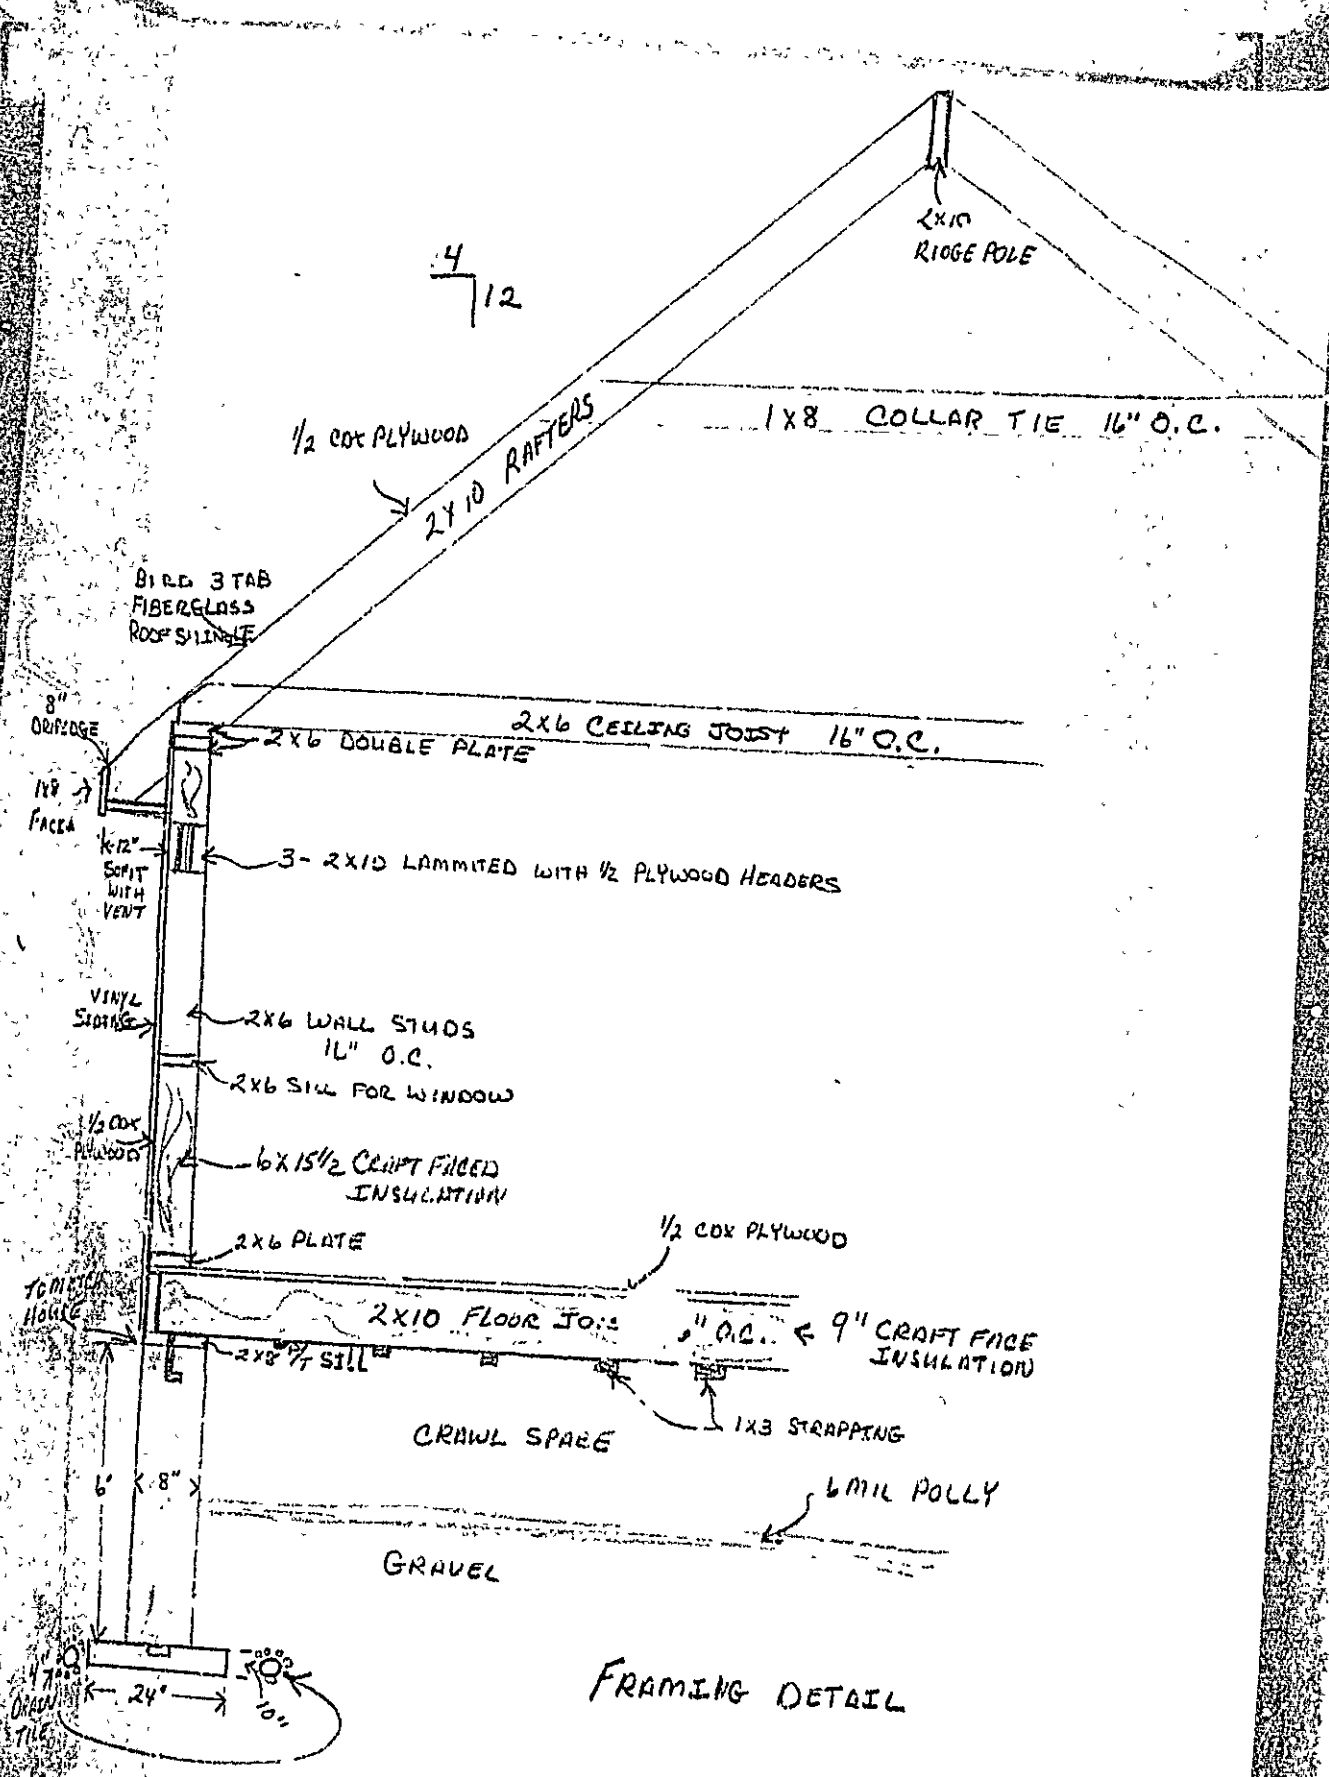 2X10
RIDGE POLE
4
12
1X8 COLLAR TIE 16" O.C.
1/2 CDX PLYWOOD
2X10 RAFTERS
BIRD 3 TAB
FIBERGLASS
ROOF SHINGLE
8"
DRIPEDGE
2X6 CEILING JOIST 16" O.C.
2X6 DOUBLE PLATE
1X8
FACEA
12"
SOFIT
WITH
VENT
3- 2X10 LAMMITED WITH 1/2 PLYWOOD HEADERS
VINYL
SIDING
2X6 WALL STUDS
16" O.C.
2X6 SILL FOR WINDOW
1/2 CDX
PLYWOOD
6X15 1/2 CRAFT FACED
INSULATION
2X6 PLATE
1/2 CDX PLYWOOD
TO MATCH
HOUSE
2X10 FLOOR
" O.C.
9" CRAFT FACE
INSULATION
2X8 P/T SILL
1X3 STRAPPING
CRAWL SPACE
6'
8"
6 MIL POLLY
GRAVEL
4"
DRAIN
TILE
24"
10"
FRAMING DETAIL